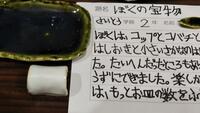 題名 ぼくの宝物
さいとう 学年 2 年 名前
ぼくは、コップとコバチと
はしおきと小さいさかなのは
た。たいへんだったところもあ
うずにできました。楽しか
は、もっとお皿の数をふ